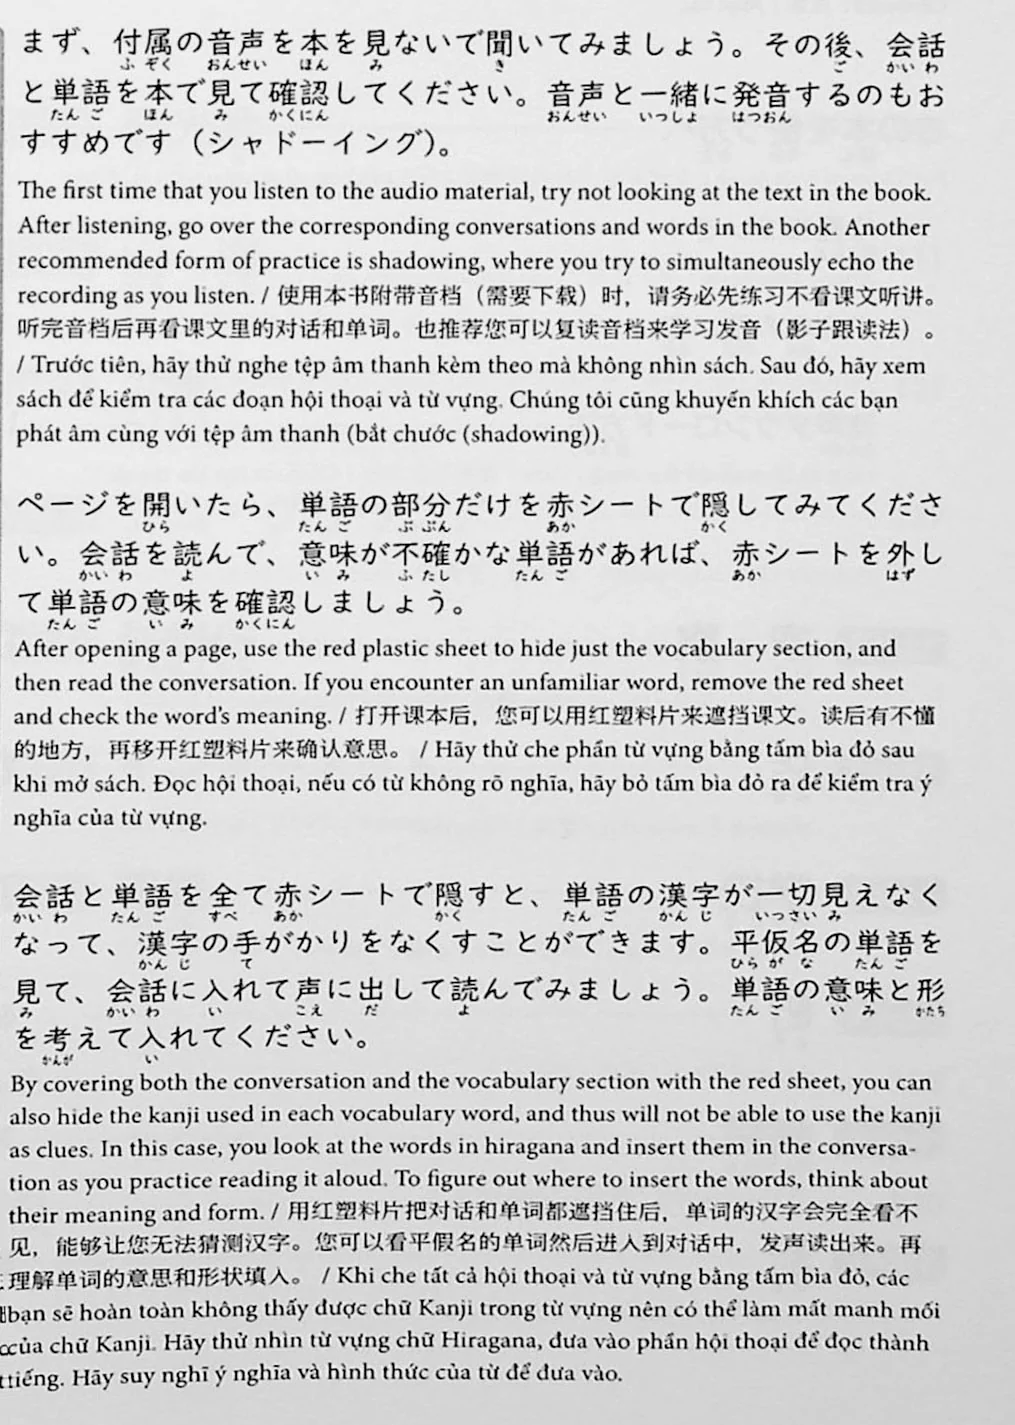 まず、付属の音声を本を見ないで聞いてみましょう。その後、会話
ふ ぞく おんせい ほん み き ご かい わ
と単語を本で見て確認してください。音声と一緒に発音するのもお
たん ご ほん み かくにん おんせい いっしょ はつおん
すすめです（シャドーイング）。
The first time that you listen to the audio material, try not looking at the text in the book.
After listening, go over the corresponding conversations and words in the book. Another
recommended form of practice is shadowing, where you try to simultaneously echo the
recording as you listen. / 使用本书附带音档（需要下载）时，请务必先练习不看课文听讲。
听完音档后再看课文里的对话和单词。也推荐您可以复读音档来学习发音（影子跟读法）。
/ Trước tiên, hãy thử nghe tệp âm thanh kèm theo mà không nhìn sách. Sau đó, hãy xem
sách để kiểm tra các đoạn hội thoại và từ vựng. Chúng tôi cũng khuyến khích các bạn
phát âm cùng với tệp âm thanh (bắt chước (shadowing)).
ページを開いたら、単語の部分だけを赤シートで隠してみてくださ
ひら たん ご ぶ ぶん あか かく
い。会話を読んで、意味が不確かな単語があれば、赤シートを外し
かい わ よ い み ふ たし たん ご あか はず
て単語の意味を確認しましょう。
たん ご い み かくにん
After opening a page, use the red plastic sheet to hide just the vocabulary section, and
then read the conversation. If you encounter an unfamiliar word, remove the red sheet
and check the word's meaning. / 打开课本后，您可以用红塑料片来遮挡课文。读后有不懂
的地方，再移开红塑料片来确认意思。 / Hãy thử che phần từ vựng bằng tấm bìa đỏ sau
khi mở sách. Đọc hội thoại, nếu có từ không rõ nghĩa, hãy bỏ tấm bìa đỏ ra để kiểm tra ý
nghĩa của từ vựng.
会話と単語を全て赤シートで隠すと、単語の漢字が一切見えなく
かい わ たん ご すべ あか かく たん ご かん じ いっさい み
なって、漢字の手がかりをなくすことができます。平仮名の単語を
かん じ て ひら が な たん ご
見て、会話に入れて声に出して読んでみましょう。単語の意味と形
み かい わ い こえ だ よ たん ご い み かたち
を考えて入れてください。
かんが い
By covering both the conversation and the vocabulary section with the red sheet, you can
also hide the kanji used in each vocabulary word, and thus will not be able to use the kanji
as clues. In this case, you look at the words in hiragana and insert them in the conversa-
tion as you practice reading it aloud. To figure out where to insert the words, think about
their meaning and form. / 用红塑料片把对话和单词都遮挡住后，单词的汉字会完全看不
见，能够让您无法猜测汉字。您可以看平假名的单词然后进入到对话中，发声读出来。再
理解单词的意思和形状填入。 / Khi che tất cả hội thoại và từ vựng bằng tấm bìa đỏ, các
bạn sẽ hoàn toàn không thấy được chữ Kanji trong từ vựng nên có thể làm mất manh mối
của chữ Kanji. Hãy thử nhìn từ vựng chữ Hiragana, đưa vào phần hội thoại để đọc thành
tiếng. Hãy suy nghĩ ý nghĩa và hình thức của từ để đưa vào.